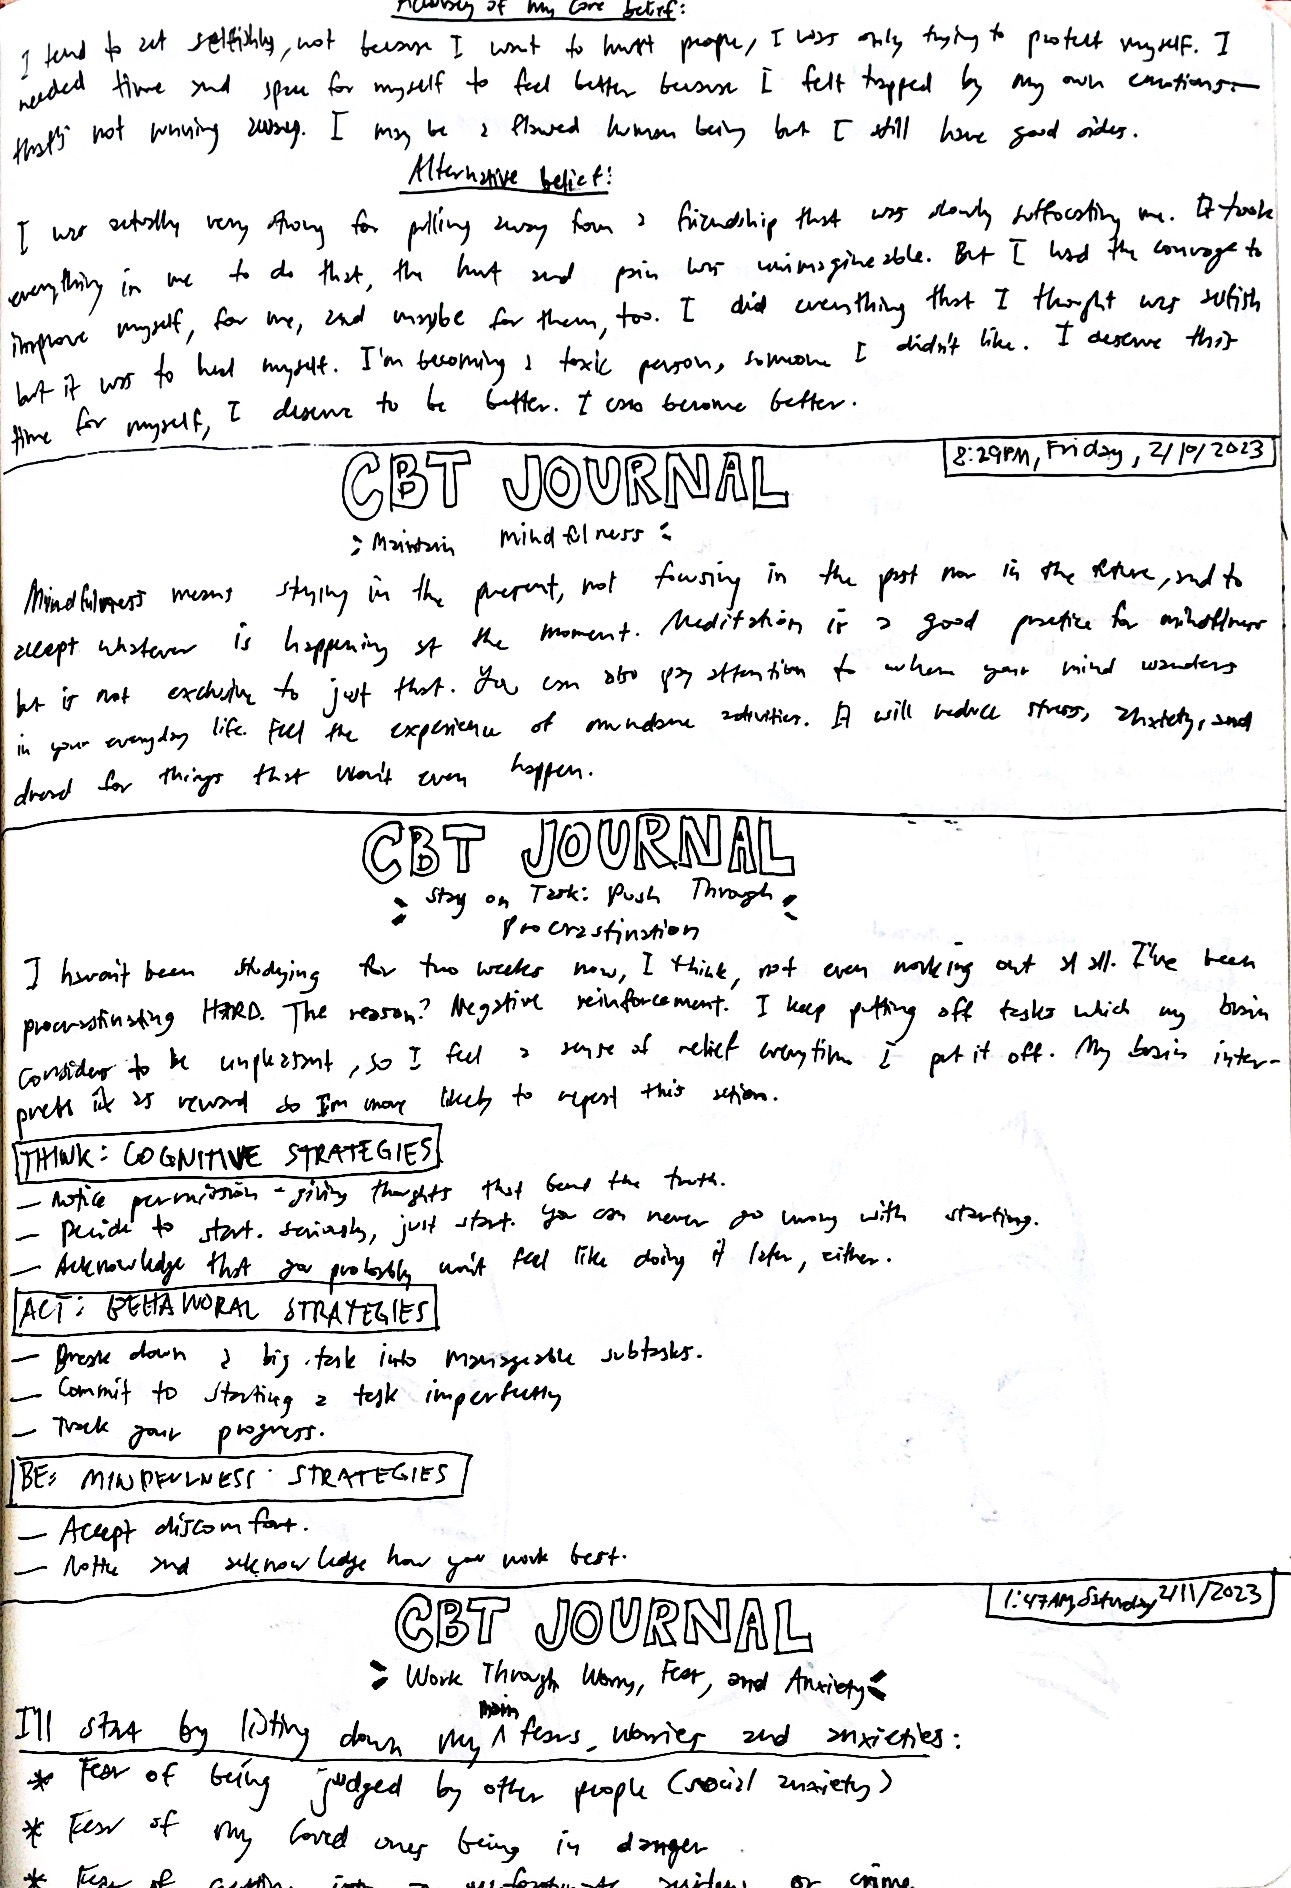 Accuracy of my core belief:
I tend to act selfishly, not because I want to hurt people, I was only trying to protect myself. I
needed time and space for myself to feel better because I felt trapped by my own emotions—
that's not running away. I may be a flawed human being but I still have good sides.
Alternative belief:
I was actually very strong for pulling away from a friendship that was slowly suffocating me. It took
everything in me to do that, the hurt and pain was unimagineable. But I had the courage to
improve myself, for me, and maybe for them, too. I did everything that I thought was selfish
but it was to heal myself. I'm becoming a toxic person, someone I didn't like. I deserve this
time for myself, I deserve to be better. I can become better.
8:29PM, Friday, 2/10/2023
CBT JOURNAL
Maintain mindfulness
Mindfulness means staying in the present, not focusing in the past nor in the future, and to
accept whatever is happening at the moment. Meditation is a good practice for mindfulness
but is not exclusive to just that. You can also pay attention to when your mind wanders
in your everyday life. Feel the experience of mundane activities. It will reduce stress, anxiety, and
dread for things that won't even happen.
CBT JOURNAL
Stay on Task: Push Through
Procrastination
I haven't been studying for two weeks now, I think, not even working out at all. I've been
procrastinating HARD. The reason? Negative reinforcement. I keep putting off tasks which my brain
considers to be unpleasant, so I feel a sense of relief everytime I put it off. My brain inter-
prets it as reward so I'm more likely to repeat this action.
THINK: COGNITIVE STRATEGIES
— Notice permission-giving thoughts that bend the truth.
— Decide to start. Seriously, just start. You can never go wrong with starting.
— Acknowledge that you probably won't feel like doing it later, either.
ACT: BEHAVIORAL STRATEGIES
— Break down a big task into manageable subtasks.
— Commit to starting a task imperfectly
— Track your progress.
BE: MINDFULNESS STRATEGIES
— Accept discomfort.
— Notice and acknowledge how you work best.
1:47AM, Saturday 2/11/2023
CBT JOURNAL
Work Through Worry, Fear, and Anxiety
I'll start by listing down my main fears, worries and anxieties:
* Fear of being judged by other people (social anxiety)
* Fear of my loved ones being in danger
* Fear of getting into a unfortunate accident or crime